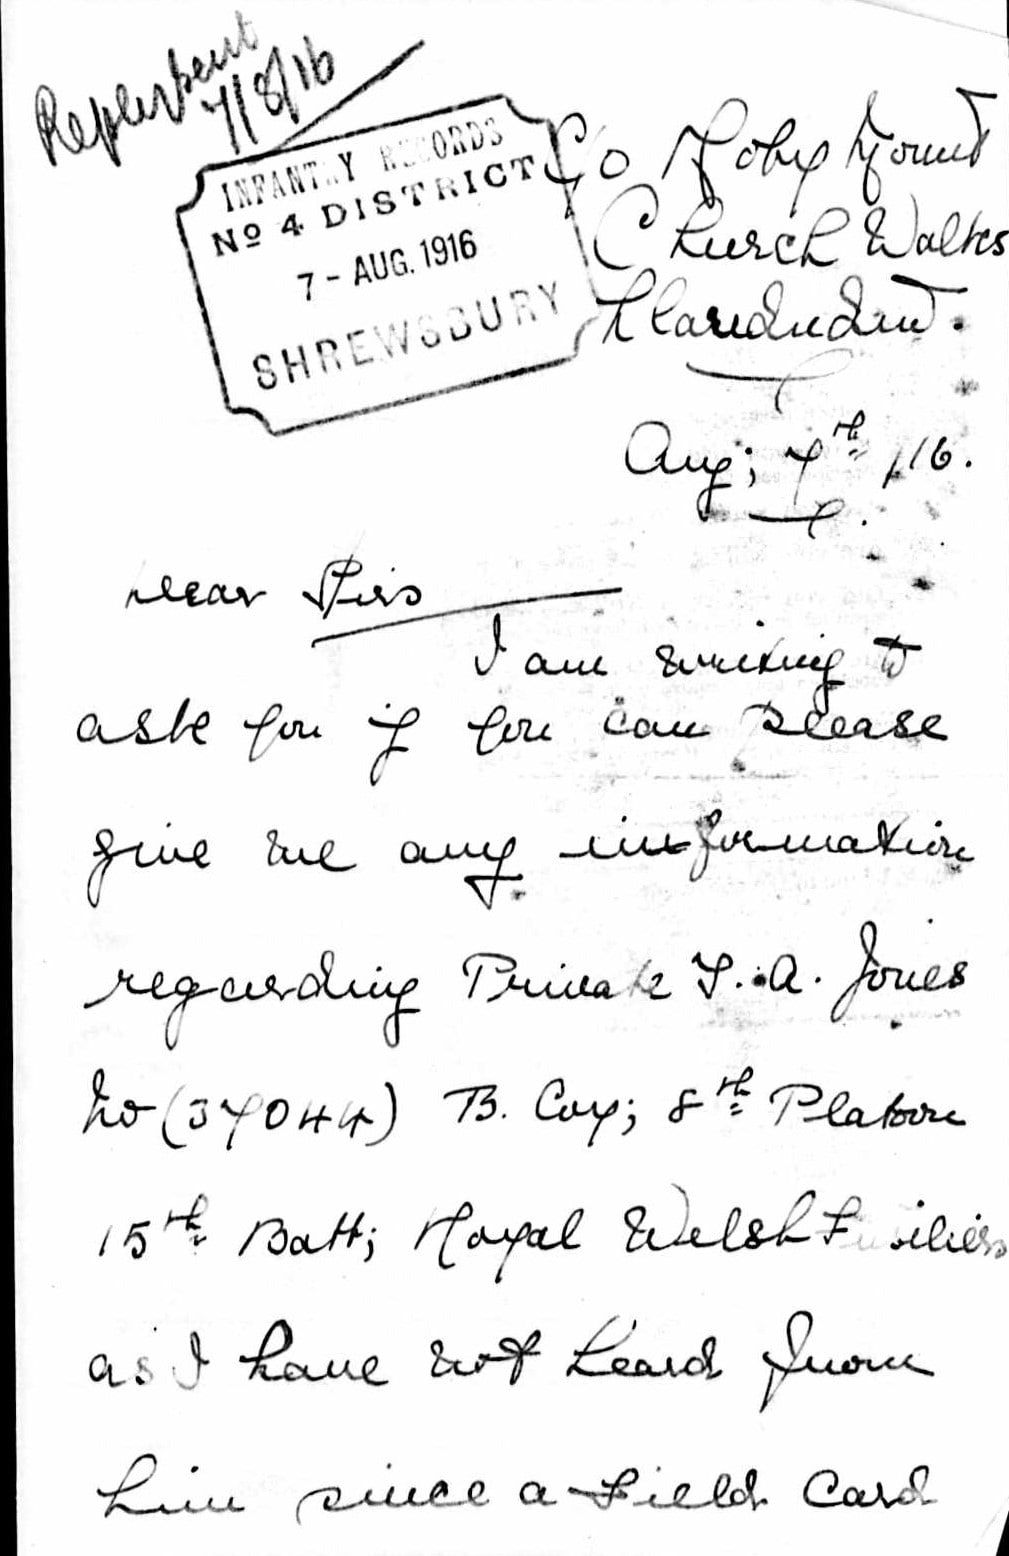 Reply sent
7/8/16
INFANTRY RECORDS
No 4 DISTRICT
7 - AUG. 1916
SHREWSBURY
C/o Roby Mount
Church Walks
Llandudno.
Aug; 7th /16.
Dear Sirs
I am writing to
ask you if you can please
give me any information
regarding Private T. A. Jones
No (37044) B. Coy; 8th Platoon
15th Batt; Royal Welsh Fusiliers
as I have not heard from
him since a Field Card